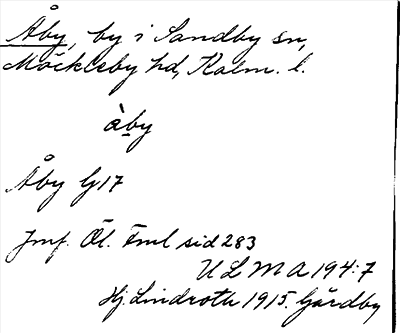 Åby, by i Sandby sn,
Möckleby hd, Kalm. l.
àby
Åby G17
Jmf. Öl. Fml sid 283
ULMA 194:7
Hj. Lindroth 1915. Gårdby